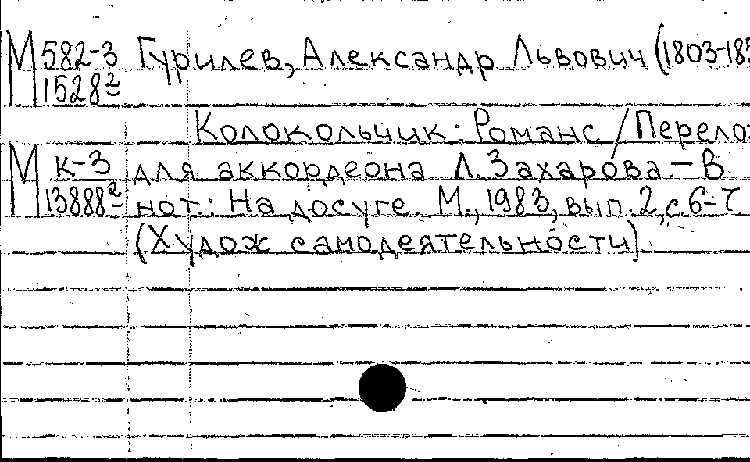 М 582-3 Гурилев, Александр Львович (1803-185
1528г
Колокольчик: Романс / Перело
М к-3 для аккордеона Л. Захарова. – В
13888г нот.: На досуге. М., 1983, вып. 2, с. 6-7
(Худож самодеятельности)